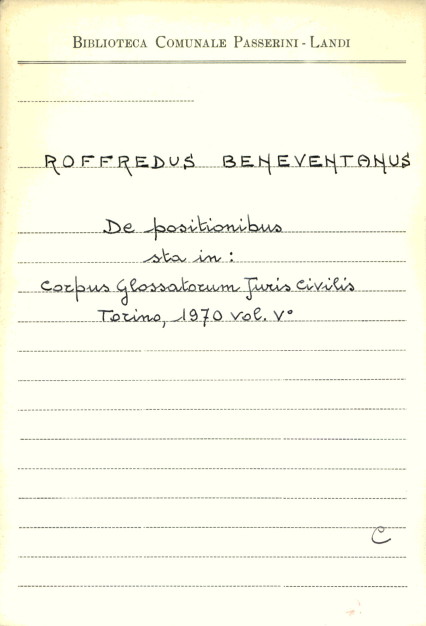 BIBLIOTECA COMUNALE PASSERINI - LANDI
ROFFREDUS BENEVENTANUS
De positionibus
sta in :
Corpus Glossatorum Juris Civilis
Torino, 1970 vol. V°
C